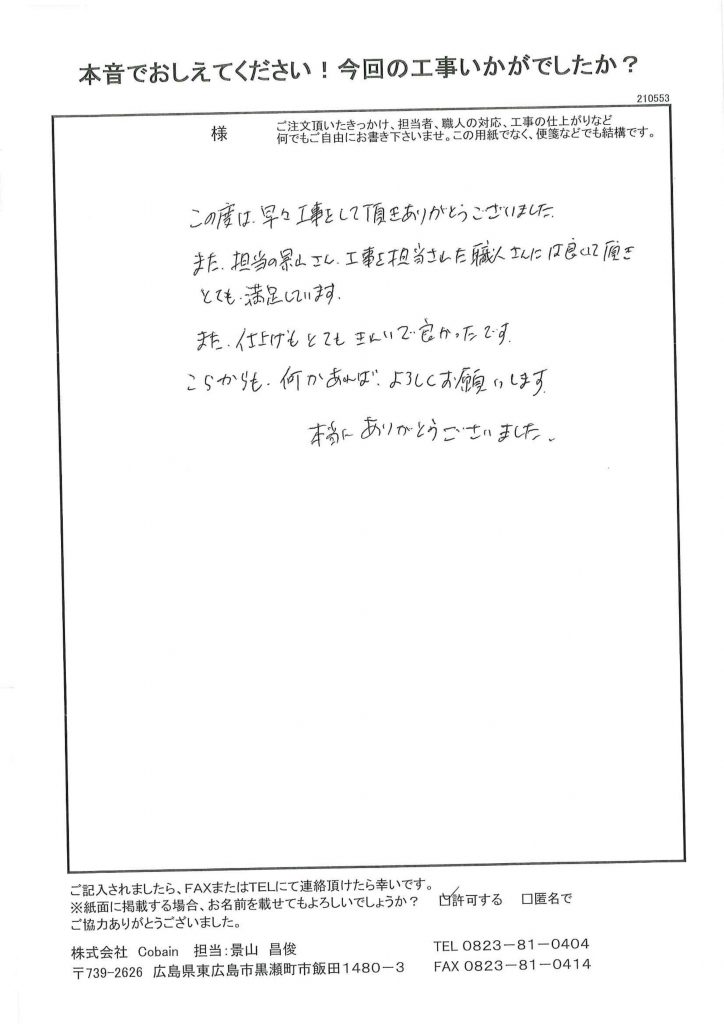 本音でおしえてください！今回の工事いかがでしたか？
210553
様
ご注文頂いたきっかけ、担当者、職人の対応、工事の仕上がりなど
何でもご自由にお書き下さいませ。この用紙でなく、便箋などでも結構です。
この度は、早々工事をして頂きありがとうございました。
また、担当の景山さん、工事を担当された職人さんには良くして頂き
とても満足しています。
また、仕上げもとてもきれいで良かったです。
こらからも、何かあれば、よろしくお願いします。
本当にありがとうございました。
ご記入されましたら、FAXまたはTELにて連絡頂けたら幸いです。
※紙面に掲載する場合、お名前を載せてもよろしいでしょうか？ ☑許可する □匿名で
ご協力ありがとうございました。
株式会社 Cobain 担当：景山 昌俊
TEL 0823－81－0404
〒739－2626 広島県東広島市黒瀬町市飯田1480－3
FAX 0823－81－0414